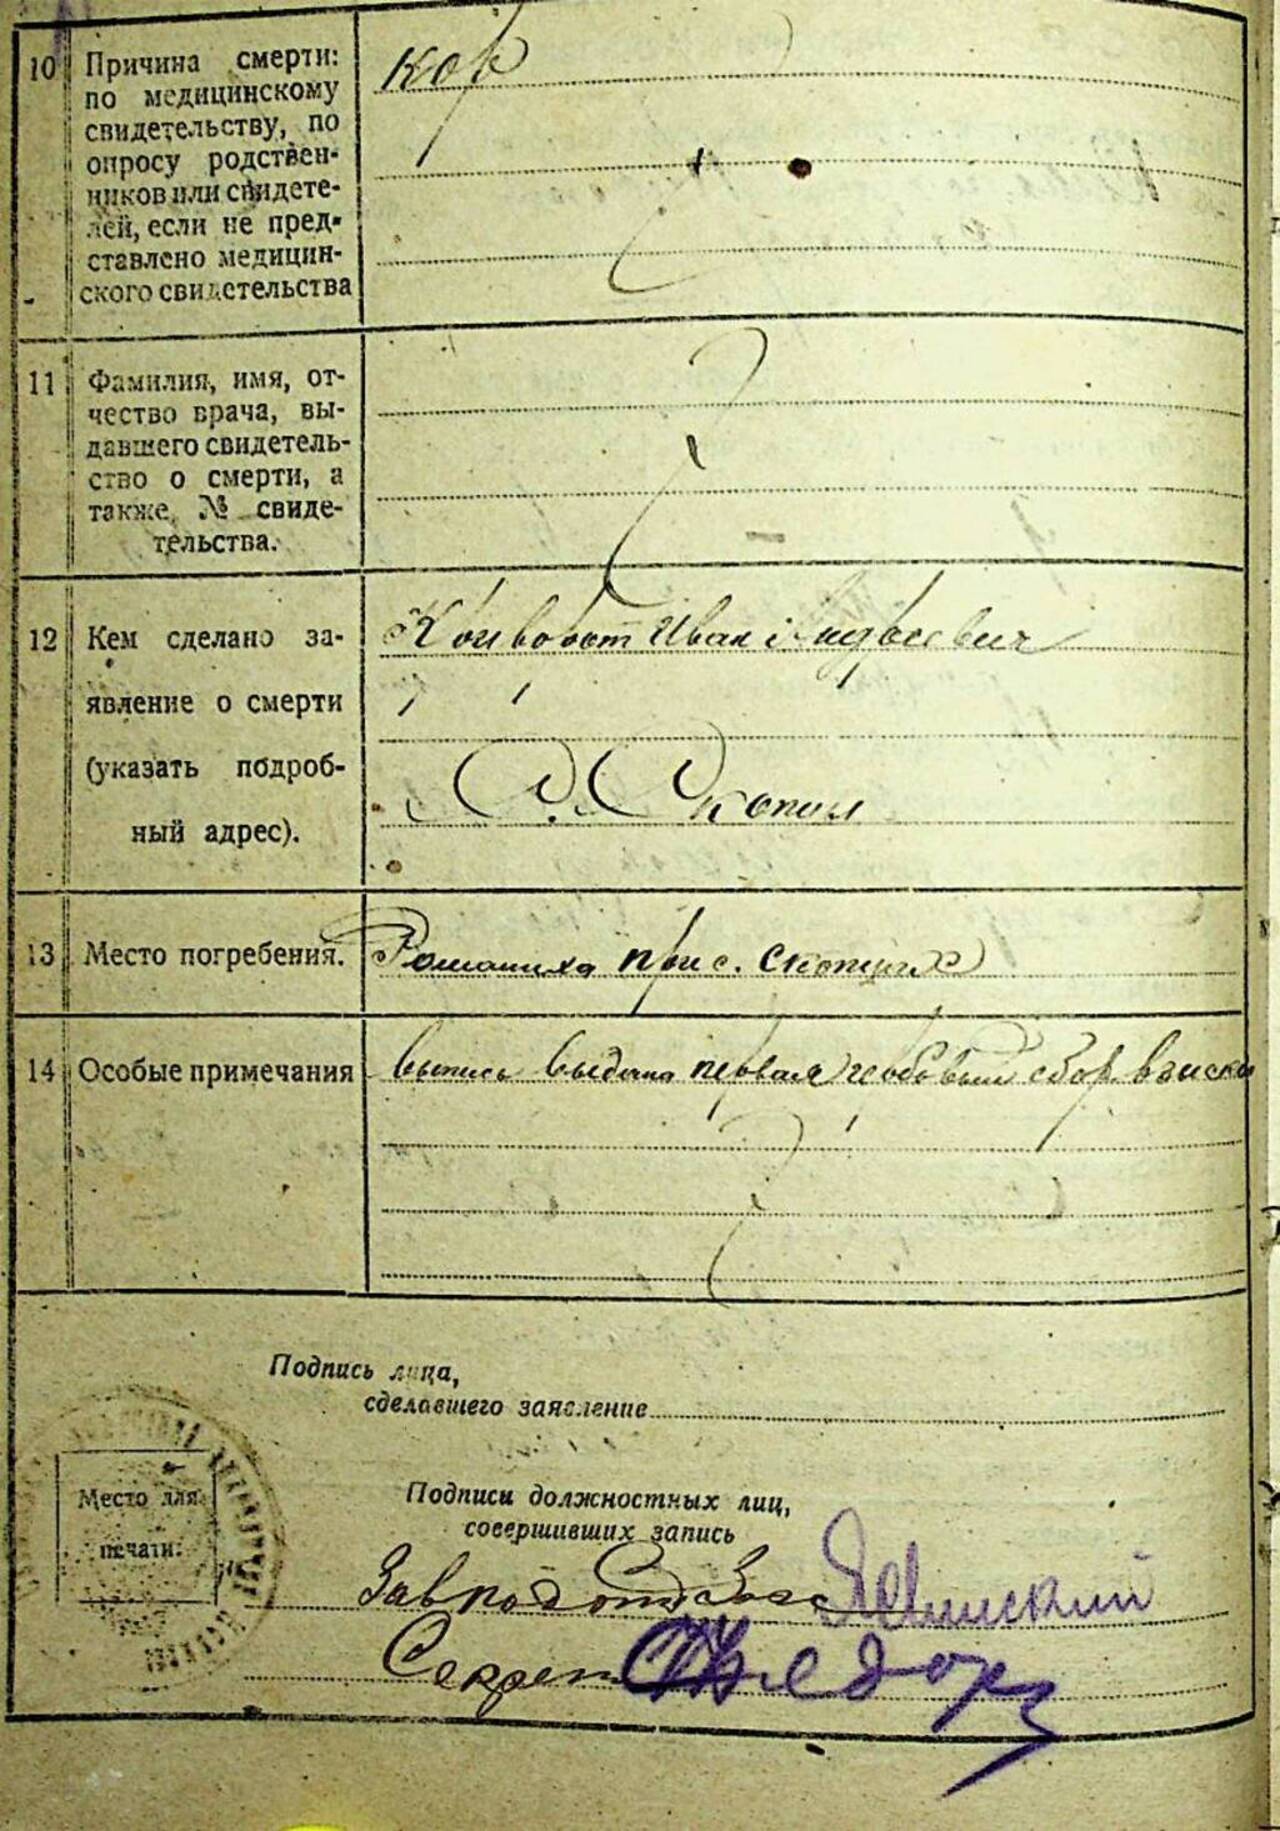 10 Причина смерти:
по медицинскому
свидетельству, по
опросу родствен-
ников или свидете-
лей, если не пред-
ставлено медицин-
ского свидетельства
кор
11 Фамилия, имя, от-
чество врача, вы-
давшего свидетель-
ство о смерти, а
также, № свиде-
тельства.
12 Кем сделано за-
явление о смерти
(указать подроб-
ный адрес).
Иван
С. Скопои
13 Место погребения.
Романиха при с. Скопцих
14 Особые примечания
выпись выдана первая гербовый сбор взыскан
Подпись лица,
сделавшего заявление
Место для
печати.
Подписи должностных лиц,
совершивших запись
Завподотд Загс
Секрет